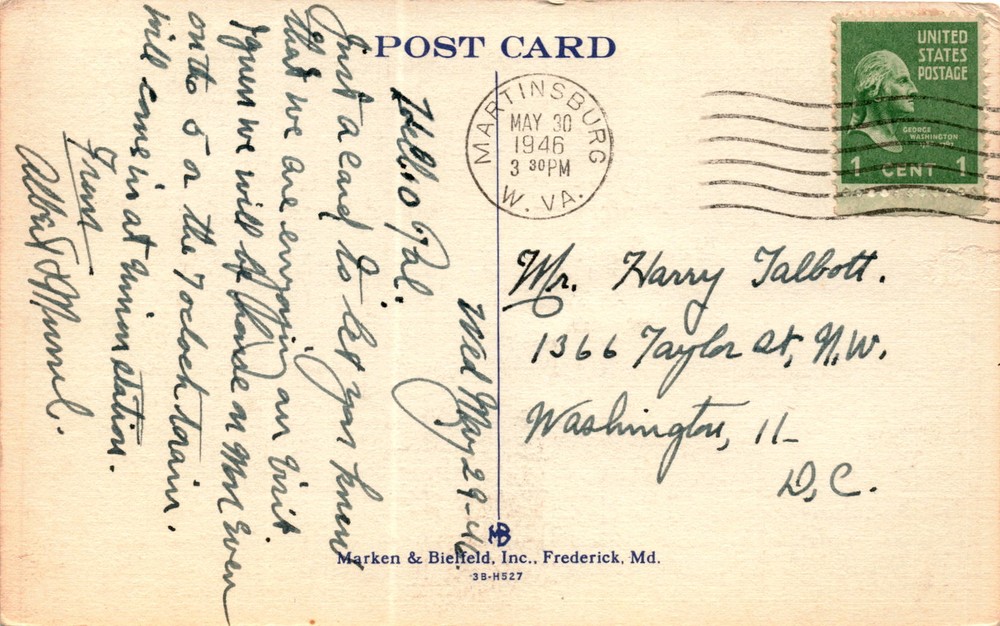 POST CARD
UNITED
STATES
POSTAGE
GEORGE
WASHINGTON
1 CENT 1
MARTINSBURG
MAY 30
1946
3 30 PM
W. VA.
Wed May 29-46.
Hello Pal.
Just a card to let you know
that we are enjoyin our visit.
I guess we will of
on the 5 or the 7 oclock train.
will come in at Union Station.
Albert &
Mr. Harry Talbott.
1366 Taylor St, N.W.
Washington, 11-
D, C.
MB
Marken & Bielfeld, Inc., Frederick, Md.
3B-H527